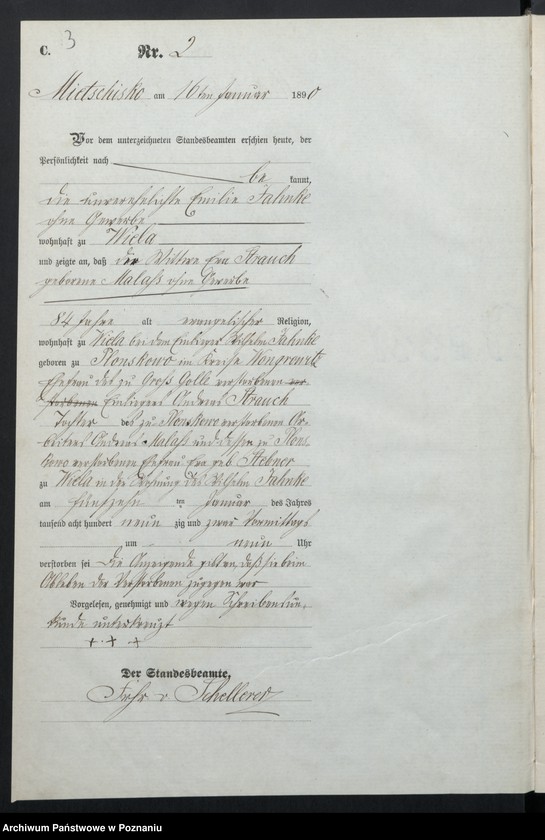 C. 3 Nr. 2
Mietschisko am 16ten Januar 1890
Vor dem unterzeichneten Standesbeamten erschien heute, der
Persönlichkeit nach
be kannt,
die unverehelichte Emilie Jahnke
ohne Gewerbe
wohnhaft zu Wiela
und zeigte an, daß die Wittwe Eva Strauch
geborene Malaß ohne Gewerbe
84 Jahre alt evangelischer Religion,
wohnhaft zu Wiela bei dem Einlieger Wilhelm Jahnke
geboren zu Plonskowo im Kreise Wongrowitz
Ehefrau des zu Groß Golle verstorbenen ver
storbenen Einliegers Andreas Strauch
Tochter des zu Plonskowo verstorbenen Ar-
beiters Andreas Malaß und dessen zu Plons
kowo verstorbenen Ehefrau Eva geb. Stebner
zu Wiela in der Wohnung des Wilhelm Jahnke
am fünfzehn ten Januar des Jahres
tausend acht hundert neun zig und zwar Vormittags
um neun Uhr
verstorben sei die Anzeigende daß sie beim
Ableben der Verstorbenen zugegen war
Vorgelesen, genehmigt und wegen Schreibensun-
kunde unterkreuzt
+ + +
Der Standesbeamte,
Frhr v Schellerer
Archiwum Państwowe w Poznaniu